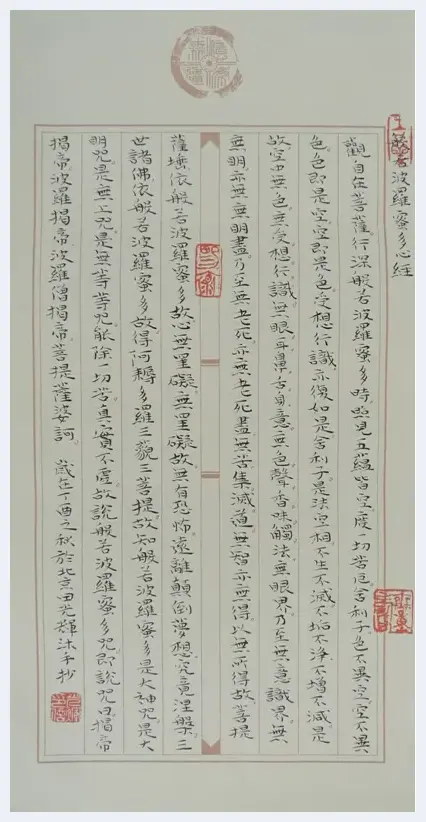 般若波羅蜜多心經
觀自在菩薩行深般若波羅蜜多時照見五蘊皆空度一切苦厄舍利子色不異空空不異
色色即是空空即是色受想行識亦復如是舍利子是法空相不生不滅不垢不淨不增不減是
故空中無色無受想行識無眼耳鼻舌身意無色聲香味觸法無眼界乃至無意識界無
無明亦無無明盡乃至無老死亦無老死盡無苦集滅道無智亦無得以無所得故菩提
薩埵依般若波羅蜜多故心無罣礙無罣礙故無有恐怖遠離顛倒夢想究竟涅槃三
世諸佛依般若波羅蜜多故得阿耨多羅三藐三菩提故知般若波羅蜜多是大神咒是大
明咒是無上咒是無等等咒能除一切苦真實不虛故說般若波羅蜜多咒即說咒曰揭帝
揭帝波羅揭帝波羅僧揭帝菩提薩婆訶 歲在丁酉之秋於北京田光輝沐手抄